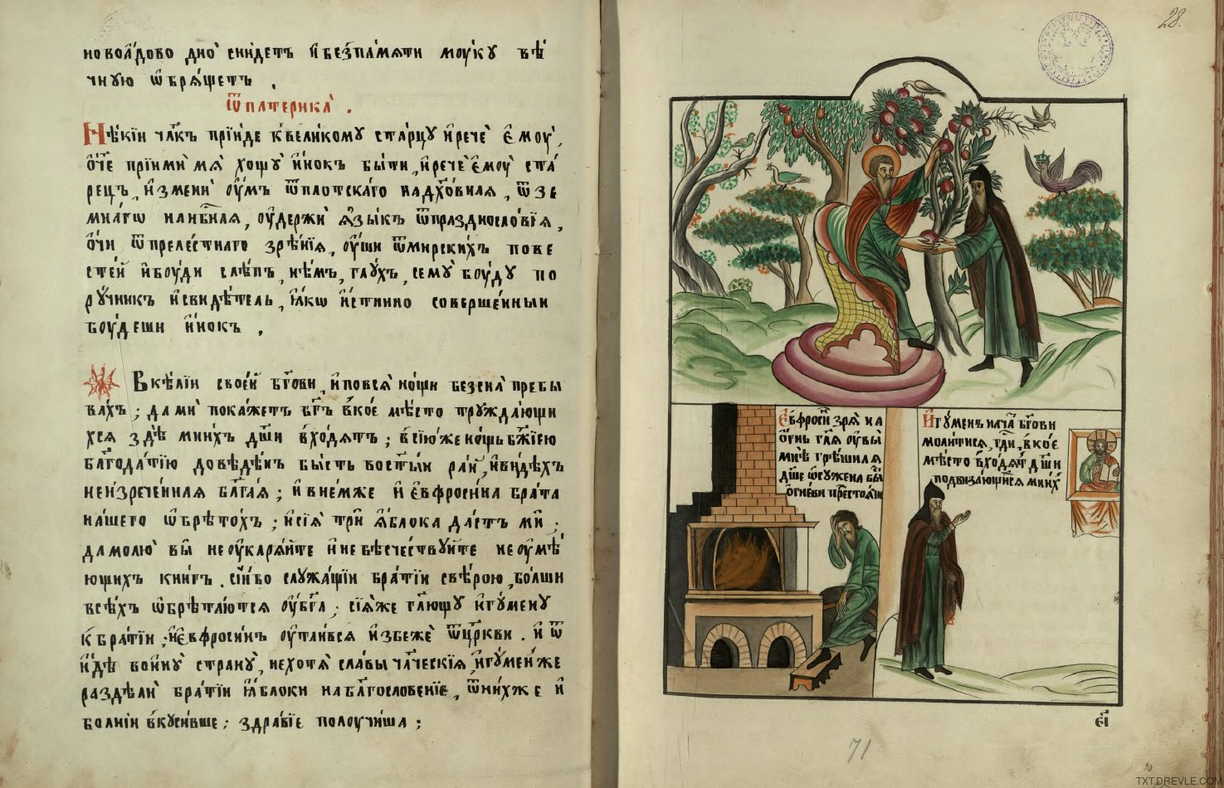 новоа́дово дно̀ сни́детъ и҆безпа́мяти мо́уку вѣ́
чную ѡ҆бря́щетъ ,
ѿ патерика̀ .
Нѣ́кїи чл҃къ прїи́де к̾вели́кому ста́рцу и҆речѐ є҆мꙋ̀ ,
о҆́ч҃е прїимѝ мя̀ хощꙋ̀ и҆́нокъ бы́ти , и҆речѐ є҆мꙋ̀ ста́
рецъ , и҆зменѝ оу҆́мъ ѿпло́тскаго надх҃о́вная , ѿзе
мна́гѡ нанб҃ная , оу҆держѝ ꙗ҆зы́къ ѿпразднослові́я ,
о҆́чи ѿпреле́стнаго зрѣ́нїя , оу҆́ши ѿмирски́хъ пове
сте́й и҆бо́уди слѣ́пъ , нѣ́мъ , глꙋ́хъ , семꙋ̀ бо́уду по
рꙋ́чникъ и҆свидѣ́тель , ꙗ҆́кѡ и҆́стинно соверше́нныи
бꙋ́деши и҆́нокъ .
В̾ке́лїи свое́й бг҃ови , и҆повся̀ но́щи безсна̀ пребы
ва́хъ ; да мѝ пока́жетъ бг҃ъ в̾ко́е мѣ́сто тружда́ющи
хся здѣ̀ мни́хъ дш҃и вхо́дятъ ; всїю́же но́щь бж҃їею
благода́тїю доведе́нъ бы́сть восты́и ра́й , и҆ви́дѣхъ
неизрече́нная бл҃га́я ; и҆внемже и҆ є҆вфроси́на бра́та
на́шего ѡ҆брѣто́хъ ; и҆сїя̀ трѝ ꙗ҆́блока да́стъ мѝ ;
да молю̀ вы̀ не оу҆каря́йте и҆невѣсче́ствꙋйте не оу҆мѣ́
ющихъ кни́гъ . сїи́ бо слꙋжа́щїи бра́тїи свѣ́рою , бо́лши
всѣ́хъ ѡ҆брѣта́ются оу҆бг҃а ; сїя́же гл҃ющꙋ и҆гꙋ́менꙋ
к̾бра́тїи ; и҆є҆вфроси́нъ оу҆таи́вся и҆збежѐ ѿцр҃кви . и҆ ѿ
и҆́дѣ воинꙋ̀ странꙋ̀ , нехотя̀ сла́вы чл҃ческїя , и҆гꙋ́менже
раздѣлѝ бра́тїи ꙗ҆́блоки набл҃гослове́нїе , ѿни́хже и҆
болнїи вкꙋси́вше ; здра́вїе полоучи́ша ;
28.
Є҆вфроси́н зря̀ на
о҆́гнь гл҃я оу҆вы̀
мнѣ̀ грѣ́шная
дш҃е ѡ҆сꙋжена̀ бы̀
о҆гневи престоя́ти
И҆гꙋ́менъ нача̀ бг҃ови
моли́тися , гд҃и , в̾ко́е
мѣ́сто вхо́дят дш҃и
подвиза́ющихся мни́х
є҃і
71
TXT.DREVLE.COM